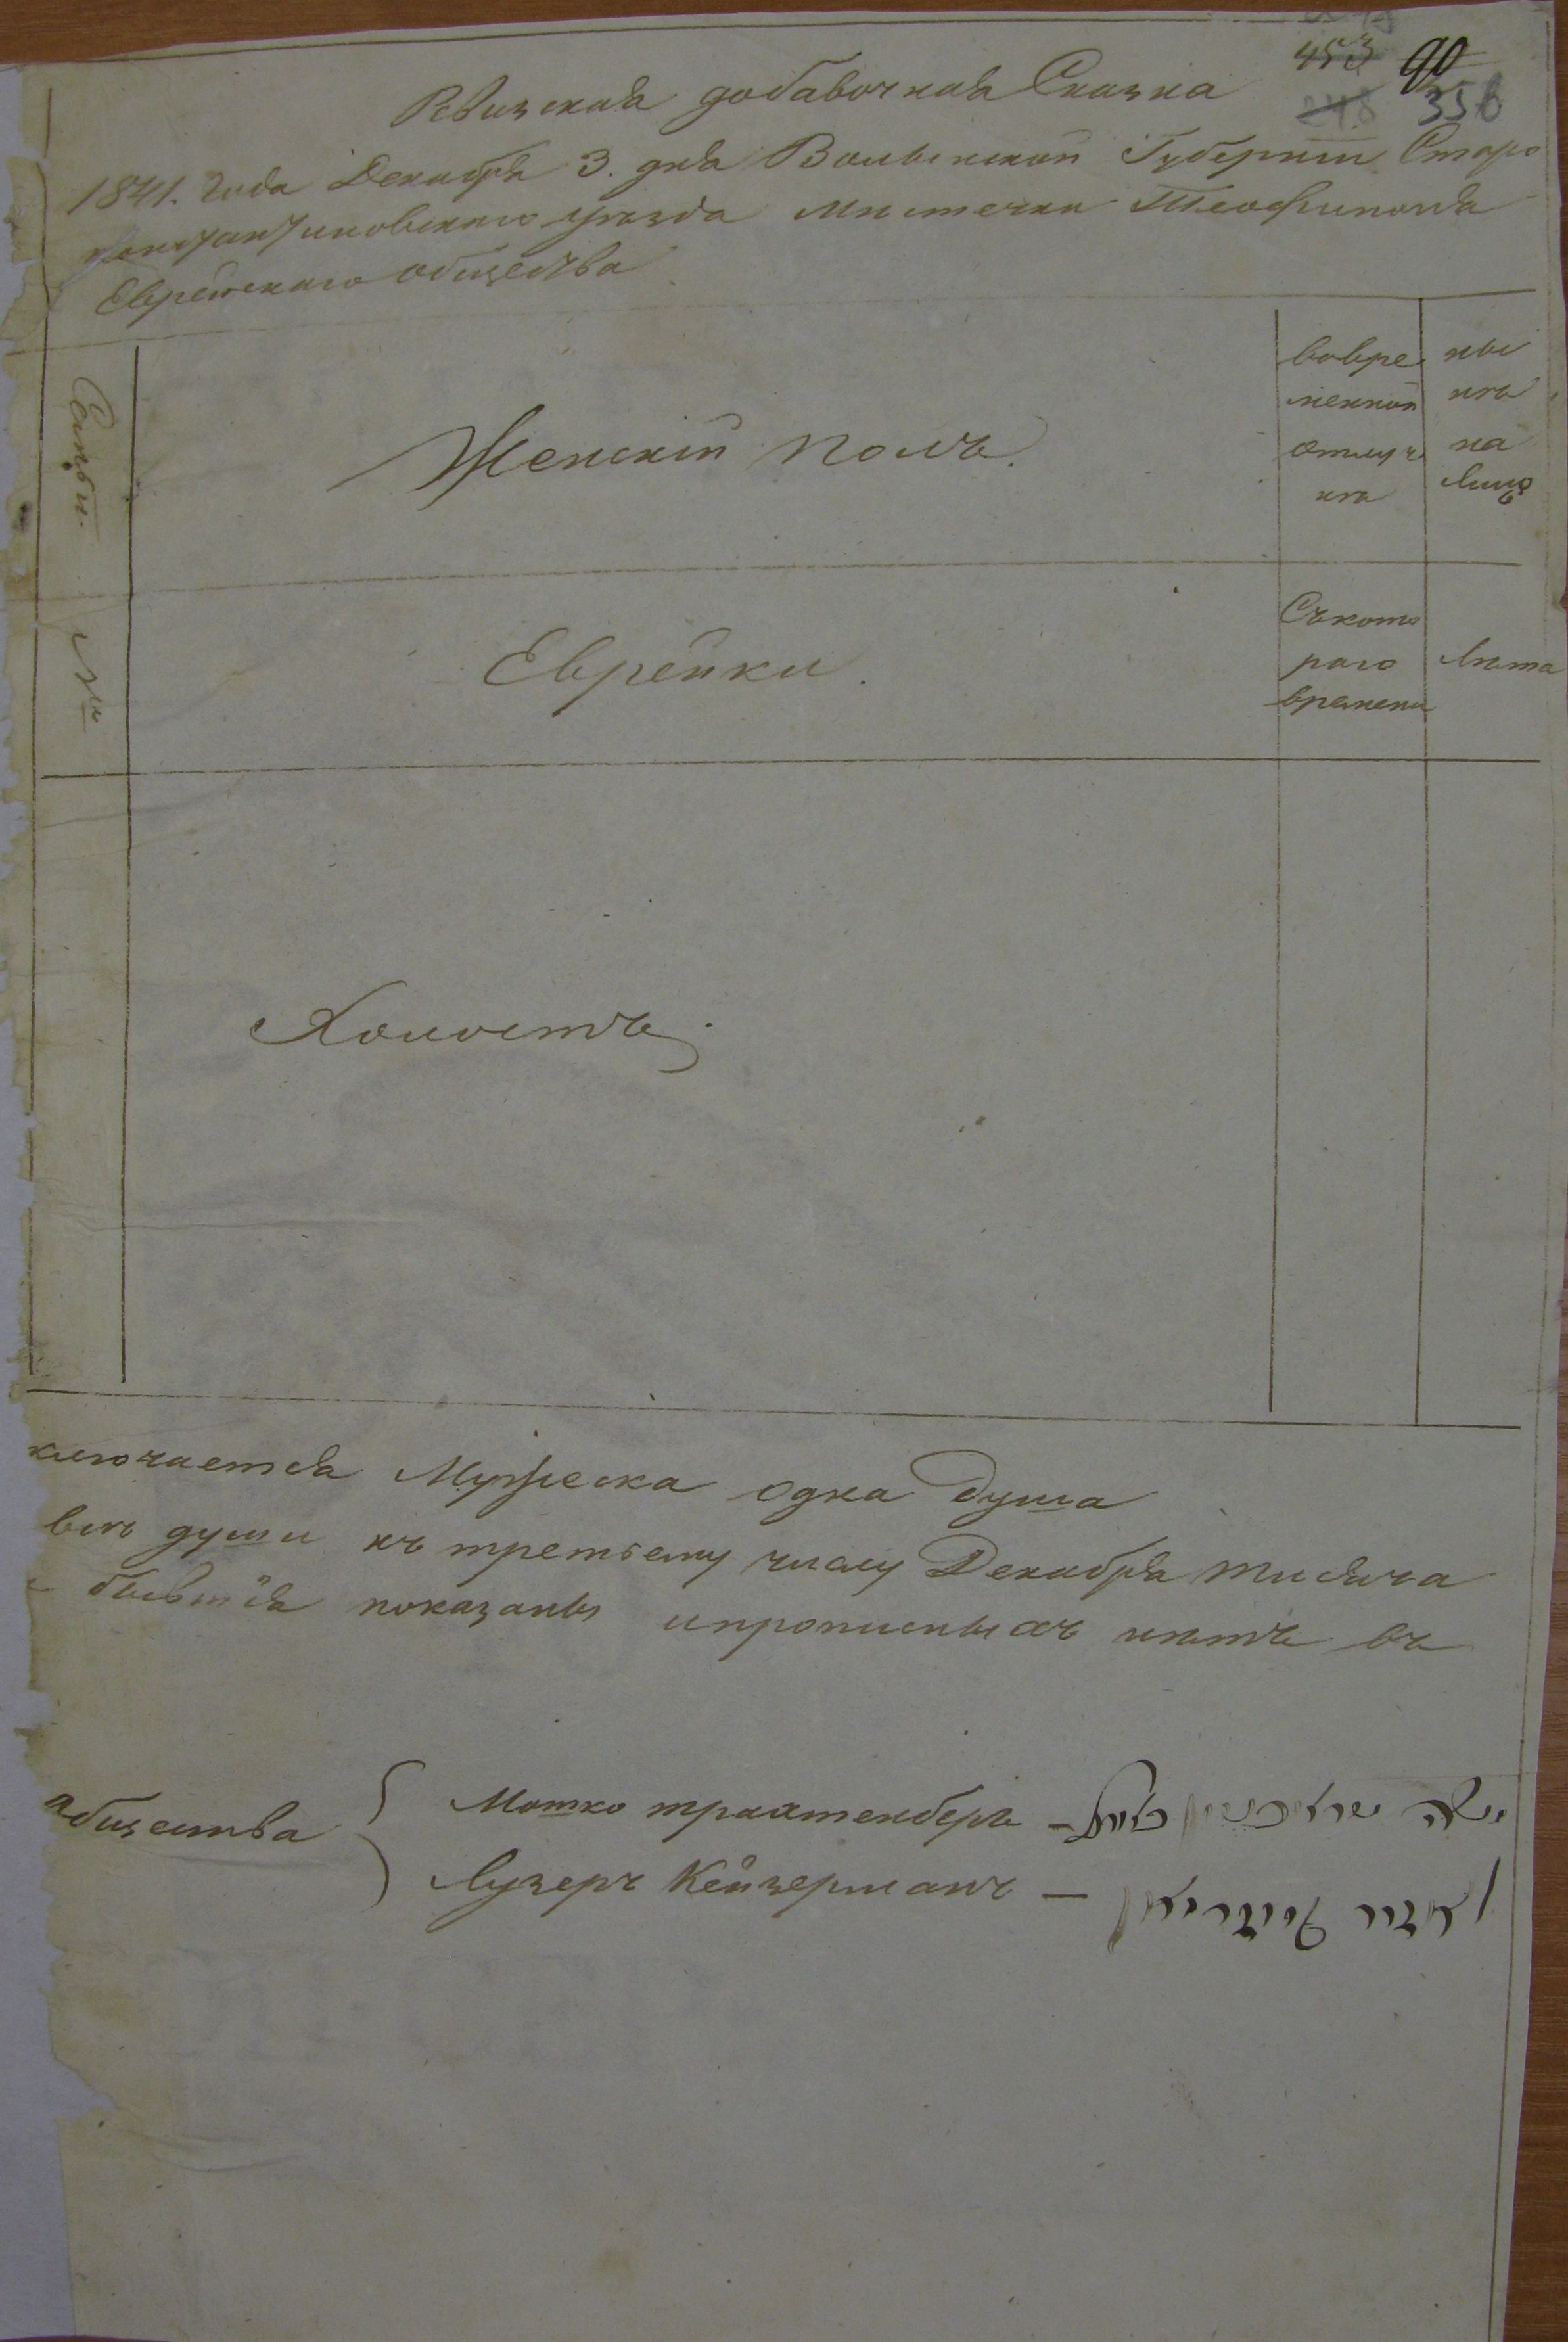 453 90
248 356
Ревизская добавочная Сказка
1841. Года Декабря 3. дня Волынской Губернии Старо
константиновского уезда Мистечки Теофиполя
Еврейского общества
Семьи.
№
Женскій полъ.
вовре
менной
отлуч
ке
ны
не
на
лицо
Еврейки.
Съкото
раго
времени
лета
Холостъ.
ключается Мужеска одна душа
все души къ третьему числу Декабря тисяча
бывшія показаны ипрописныхъ нетъ въ
общества
Мотко трахтенберг –
Лузеръ Кейзерманъ –